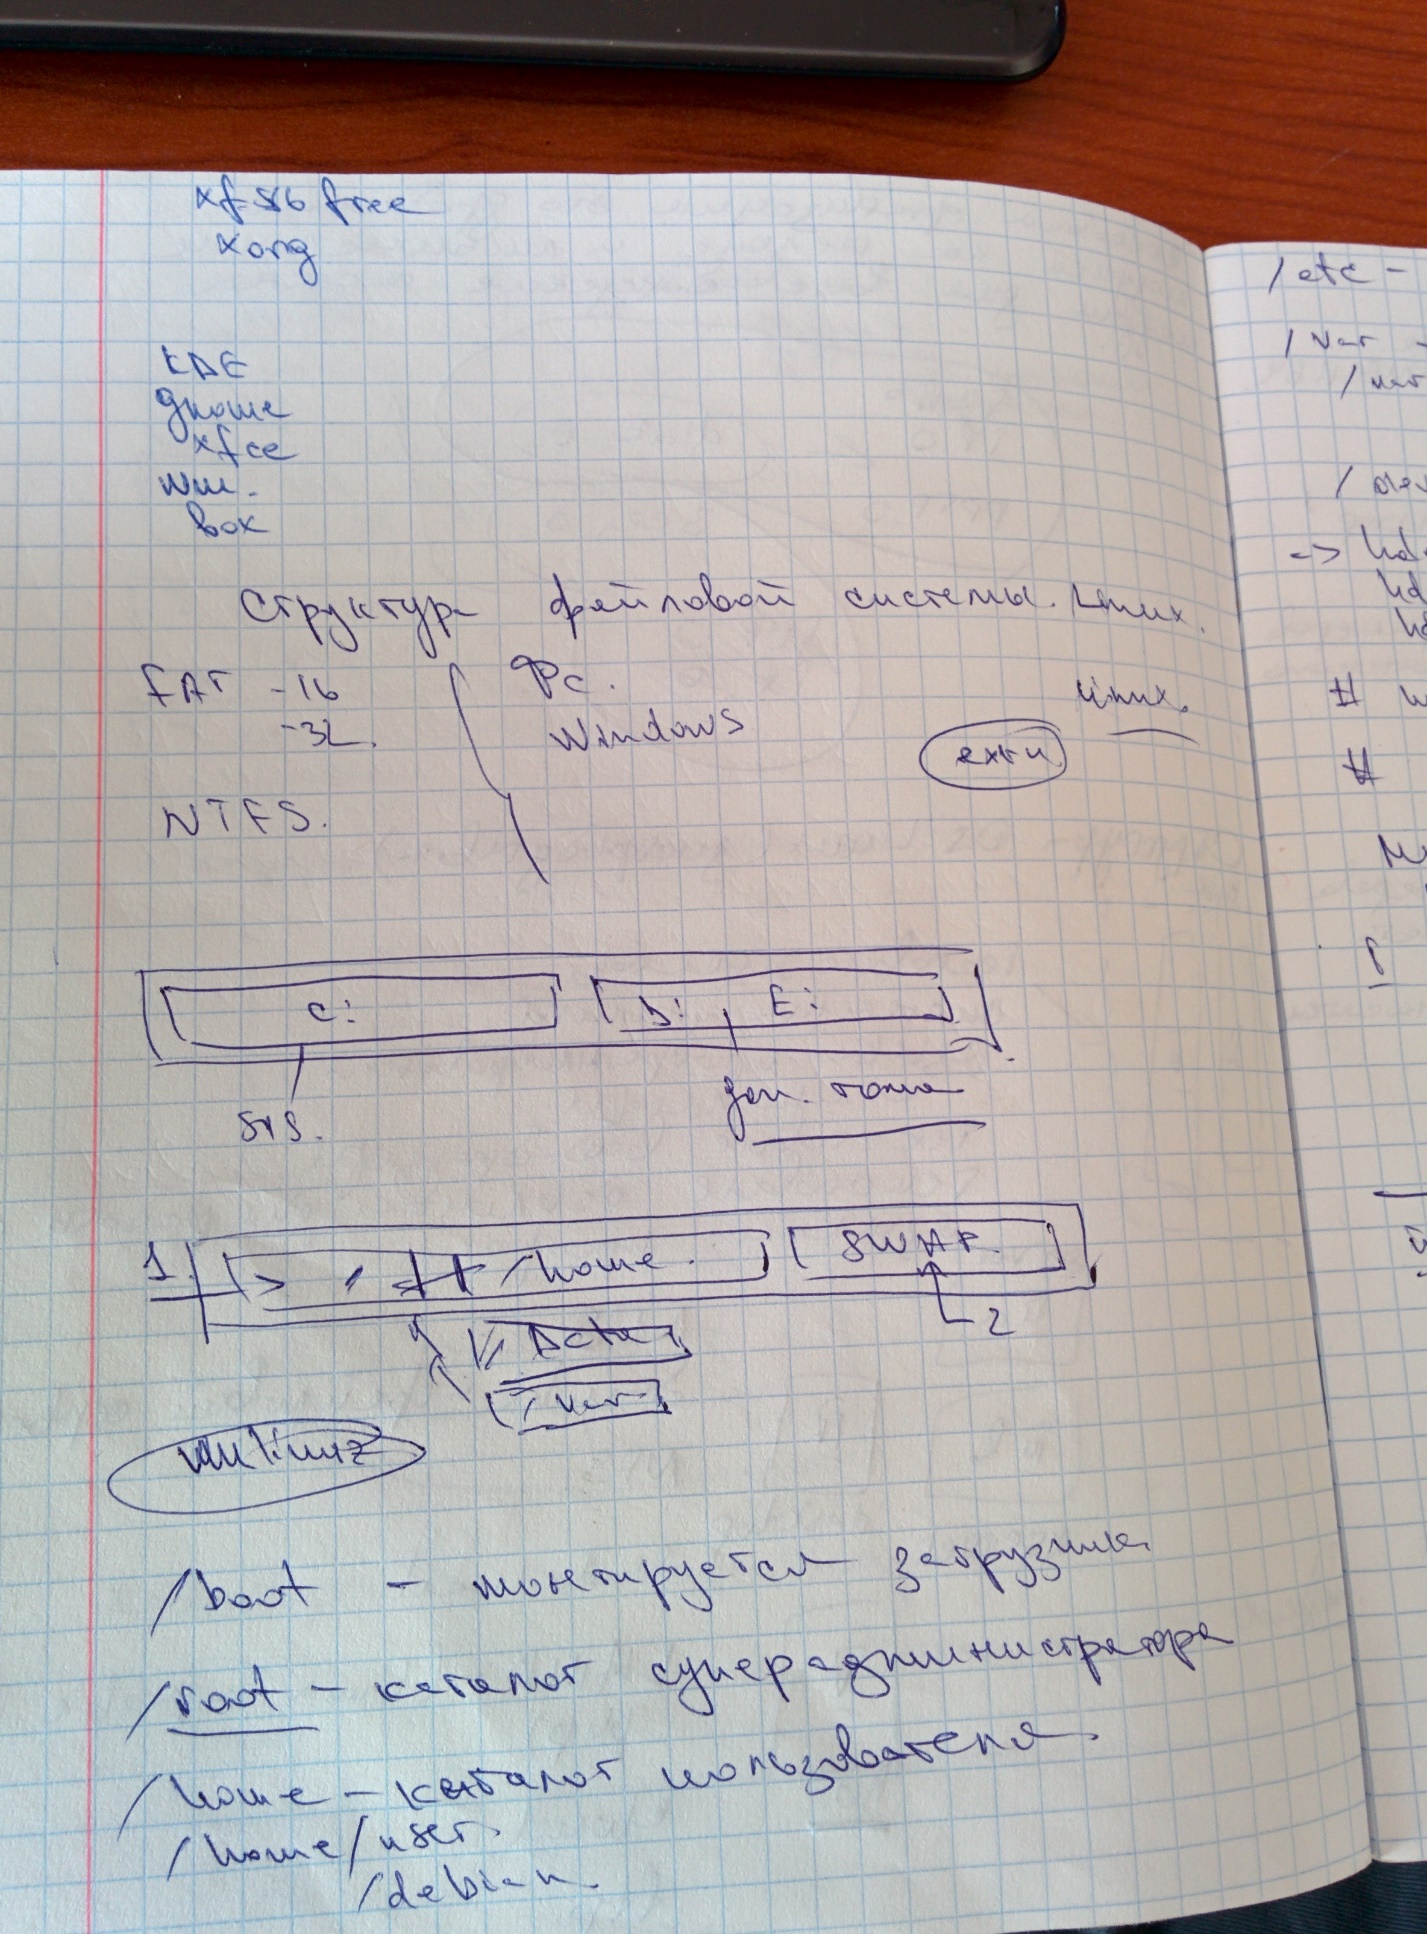 xf86 free
xorg
KDE
gnome
xfce
wm.
box
Структура файловой системы. Linux.
FAT -16
-32.
Pc.
Windows
Linux.
NTFS.
C:
D: , E:
sys.
доп. тома
1. / /home. SWAP.
2
/ Data
/ var
vmlinuz
/boot - монтируется загрузчик
/root - каталог суперадминистратора
/home - каталог пользователя.
/home/user.
/debian.
/etc -
/var -
/var
/dev
->
#
#